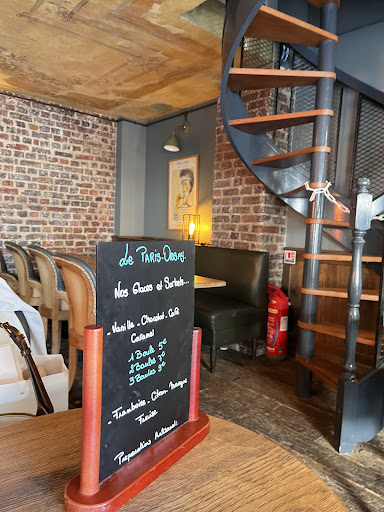 Le PARIS-ORSAY
Nos Glaces et Sorbets...
- Vanille - Chocolat - Café
Caramel
1 Boule 5€
2 Boules 7€
3 Boules 9€
- Framboise - Citron - Mangue
Fraise
Préparation Artisanale